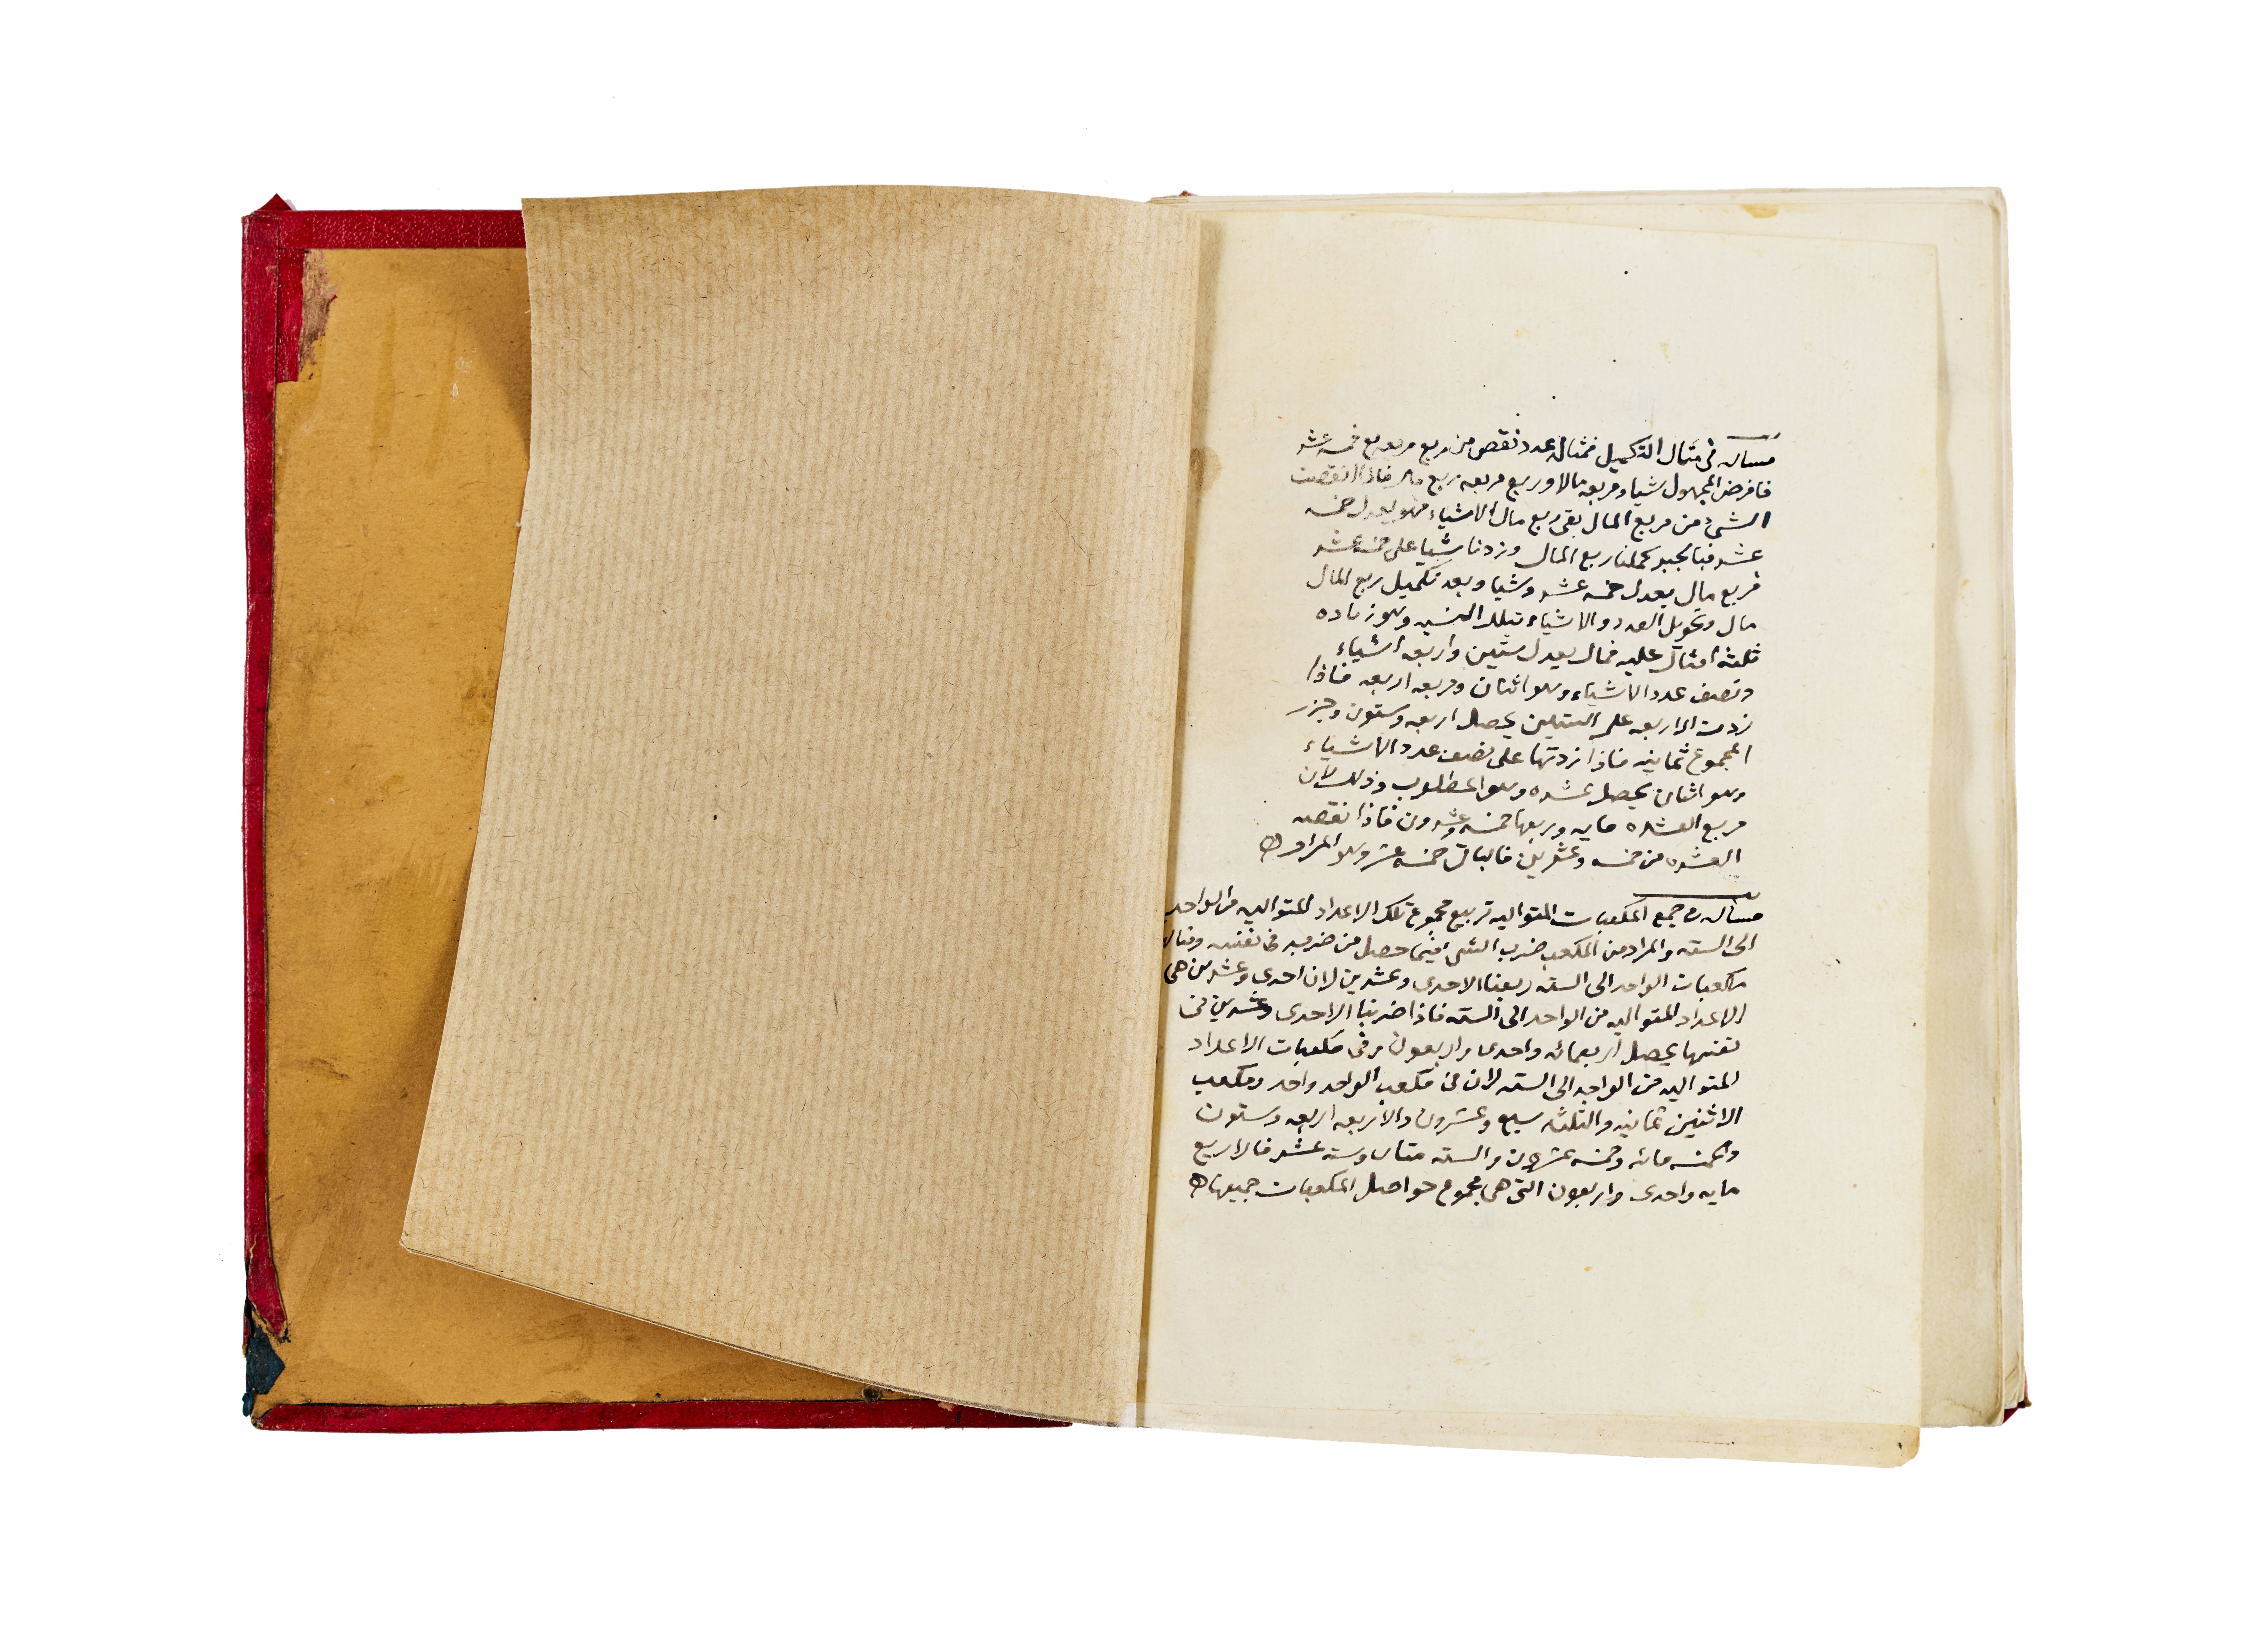 مسالة في مثال التكميل فمثاله عدد نقص من ربع مربعه بقي خمسة عشر
فافرض المجهول شيا ومربعه مالا وربع مربعه ربع مال فاذا انقصت
الشيء من ربع المال بقى ربع مال الا شياء وهو يعدل خمسه
عشر فبالجبر كملنا ربع المال وزدنا شيا على خمسه عشر
فربع مال يعدل خمسه عشر وشيا وبعد تكميل ربع المال
مال وتحويل العدد والاشياء بتلك النسبه وهو زياده
ثلثة امثال عليه فمال يعدل ستين واربعه اشياء
ونصف عدد الاشياء وهو اثنان ومربعه اربعه فاذا
زدت الاربعه على الستين يحصل اربعه وستون وجزر
المجموع ثمانيه فاذا زدتها على نصف عدد الاشياء
وهو اثنان يحصل عشره وهو المطلوب وذلك لان
مربع العشره مايه وربعها خمسه وعشرون فاذا نقص
العشره من خمسه وعشرين فالباق خمسه عشر وهو المراد
مسالة في جمع المكعبات المتواليه تربيع مجموع تلك الاعداد المتواليه من الواحد
الى السته والمراد من المكعب ضرب الشى فيما حصل من ضربه فى نفسه ومثال
مكعبات الواحد الى السته ربعنا الاحدى وعشرين لان احدى وعشرين هى
الاعداد المتواليه من الواحد الى السته فاذا ضربنا الاحدى وعشرين فى
نفسها يحصل اربعمائه واحدى واربعون وفى مكعبات الاعداد
المتواليه من الواحد الى السته لان فى مكعب الواحد واحد ومكعب
الاثنين ثمانيه والثلثه سبع وعشرون والاربعه اربعه وستون
والخمسه مائه وخمسه عشرون والسته متان وسته عشر فالاربع
مايه واحدى واربعون التى هى مجموع حواصل المكعبات جميعها